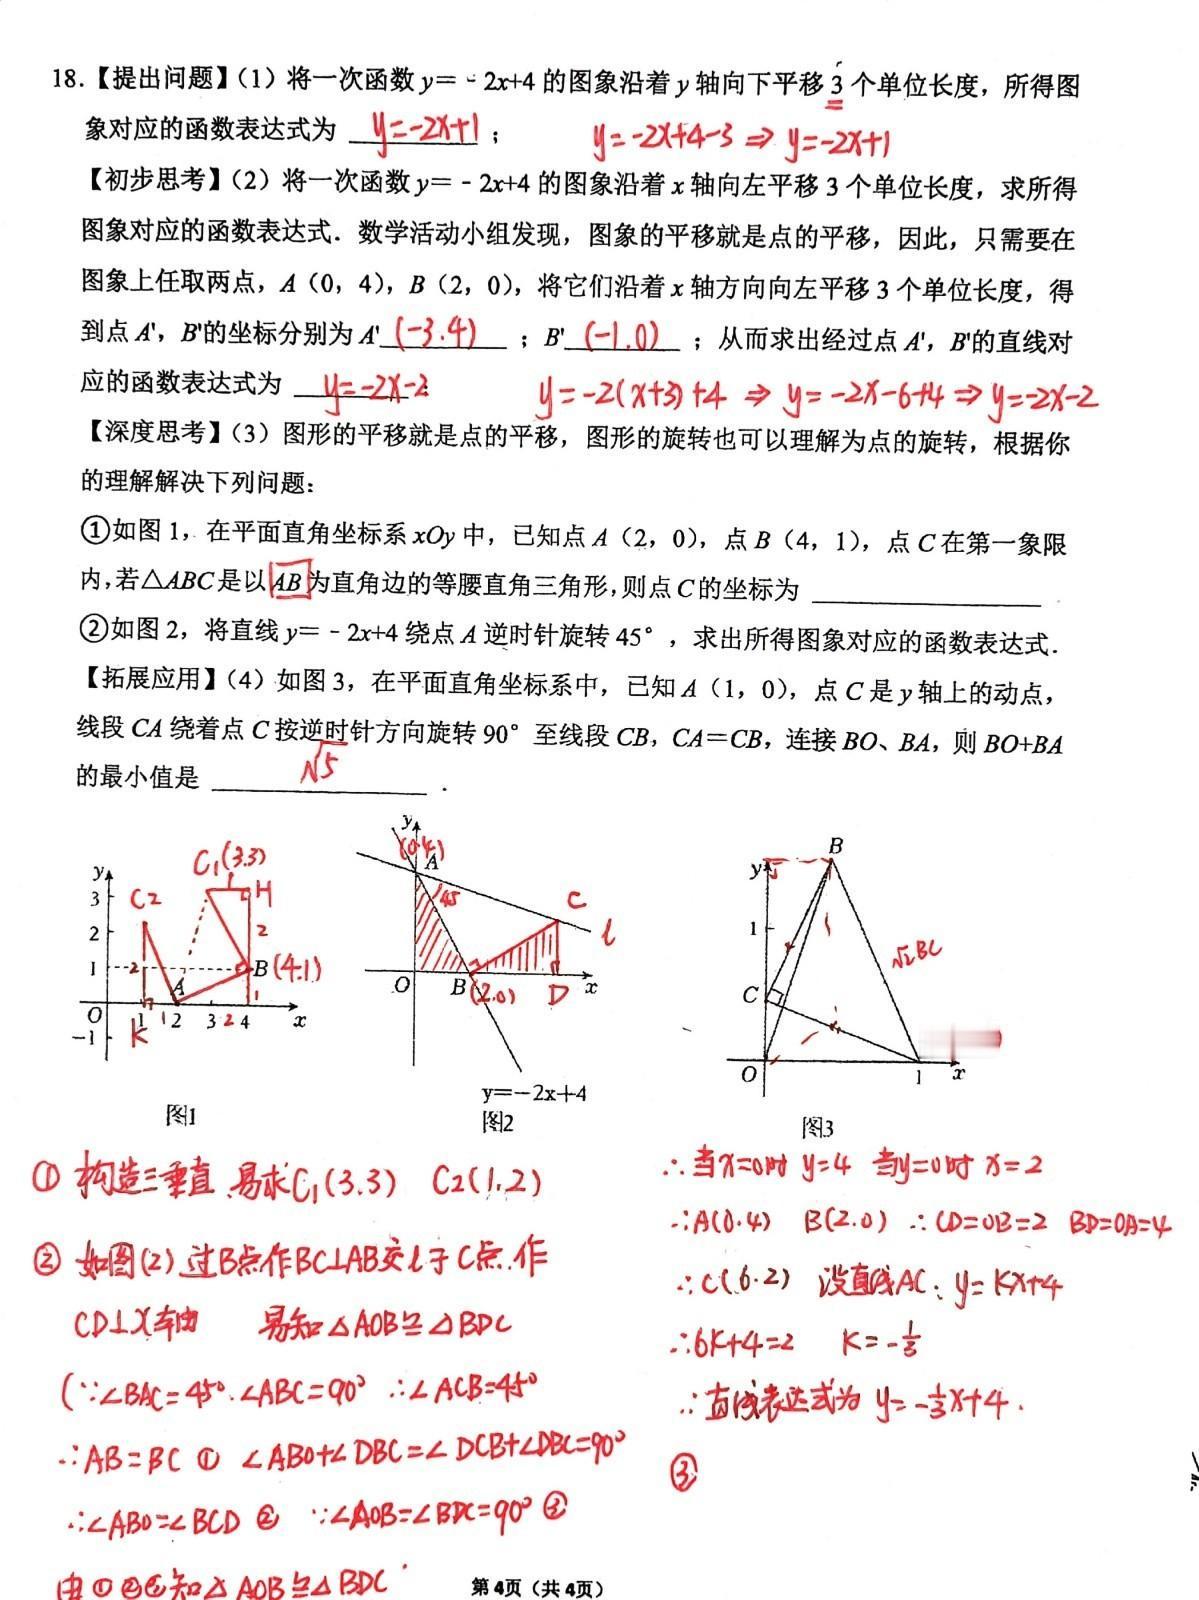 18.【提出问题】(1)将一次函数y=-2x+4的图象沿着y轴向下平移3个单位长度,所得图
象对应的函数表达式为 y=-2x+1 ; y=-2x+4-3⇒y=-2x+1
【初步思考】(2)将一次函数y=-2x+4的图象沿着x轴向左平移3个单位长度,求所得
图象对应的函数表达式.数学活动小组发现,图象的平移就是点的平移,因此,只需要在
图象上任取两点,A(0,4),B(2,0),将它们沿着x轴方向向左平移3个单位长度,得
到点A',B'的坐标分别为A' (-3.4) ;B' (-1.0) ;从而求出经过点A',B'的直线对
应的函数表达式为 y=-2x-2 ; y=-2(x+3)+4⇒y=-2x-6+4⇒y=-2x-2
【深度思考】(3)图形的平移就是点的平移,图形的旋转也可以理解为点的旋转,根据你
的理解解决下列问题:
①如图1,在平面直角坐标系xOy中,已知点A(2,0),点B(4,1),点C在第一象限
内,若△ABC是以AB为直角边的等腰直角三角形,则点C的坐标为 .
②如图2,将直线y=-2x+4绕点A逆时针旋转45°,求出所得图象对应的函数表达式.
【拓展应用】(4)如图3,在平面直角坐标系中,已知A(1,0),点C是y轴上的动点,
线段CA绕着点C按逆时针方向旋转90°至线段CB,CA=CB,连接BO、BA,则BO+BA
的最小值是 √5 .
y
3
2
1
O
-1
C2
C1(3.3)
1
H
2
B(4.1)
1
2
A
K
1
1 2 3 2 4
x
图1
y
(0.4)
A
45
C
l
O
B
(2.0)
D
x
y=-2x+4
图2
B
y
1
√2BC
C
O
1
x
图3
① 构造三垂直,易求C1(3.3) C2(1.2)
② 如图(2)过B点作BC⊥AB交l于C点.作
CD⊥X轴 易知△AOB≌△BDC
(∵∠BAC=45°.∠ABC=90° ∴∠ACB=45°
∴AB=BC ① ∠ABO+∠DBC=∠DCB+∠DBC=90°
∴∠ABO=∠BCD ② ∵∠AOB=∠BDC=90° ③
由①②③知△AOB≌△BDC
∴当x=0时 y=4 当y=0时 x=2
∴A(0.4) B(2.0) ∴CD=OB=2 BD=OA=4
∴C(6.2) 设直线AC:y=kx+4
∴6k+4=2 k=-1/3
∴直线表达式为 y=-1/3x+4.
③
第4页(共4页)